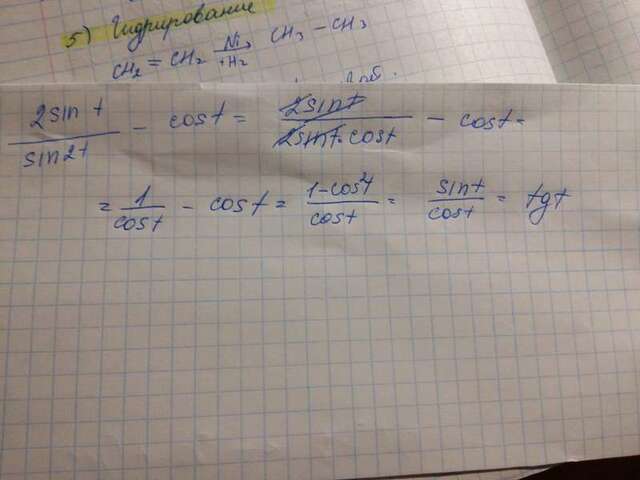 5) Гидрирование
CH₂ = CH₂ Ni→ +H₂ CH₃ - CH₃
2sin t / sin2t - cost = 2sint / 2sint·cost - cost =
= 1 / cost - cost = 1-cos²t / cost = sint / cost = tgt